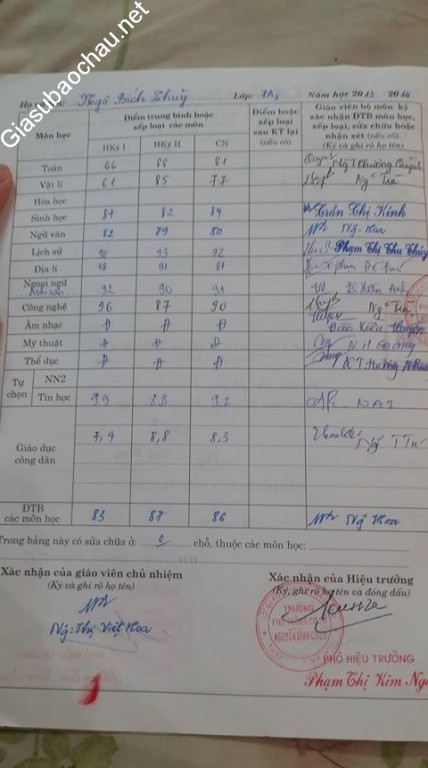 Giasubaochau.net
Họ Ngô Bích Thuỳ Lớp: 7A5 Năm học 2013 - 2014
Môn học
Điểm trung bình hoặc xếp loại các môn
HKỳ I HKỳ II CN
Điểm hoặc xếp loại sau KT lại (nếu có)
Giáo viên bộ môn ký xác nhận ĐTB môn học, xếp loại, sửa chữa hoặc nhận xét (nếu có)
(Ký và ghi rõ họ tên)
Toán 66 88 81 Ng T Phương Quỳnh
Vật lí 61 85 77 Ng Trà
Hóa học
Sinh học 81 82 84 Trần Thị Kính
Ngữ văn 82 89 80
Lịch sử 93 92 Phạm Thị Thu Thủy
Địa lí 78 91 81
Ngoại ngữ 92 90 91
Công nghệ 96 87 90
Âm nhạc Đ Đ Đ
Mỹ thuật Đ Đ Đ
Thể dục Đ Đ Đ
Tự chọn
NN2
Tin học 99 88 92
Giáo dục công dân 7,9 8,8 8,3
ĐTB các môn học 83 87 86 Ng Hoa
Trong bảng này có sửa chữa ở: 0 chỗ, thuộc các môn học:
Xác nhận của giáo viên chủ nhiệm
(Ký và ghi rõ họ tên)
Ng: Thị Việt Hoa
Xác nhận của Hiệu trưởng
(Ký, ghi rõ họ tên và đóng dấu)
TRƯỜNG
PHÓ HIỆU TRƯỞNG
Phạm Thị Kim Ng